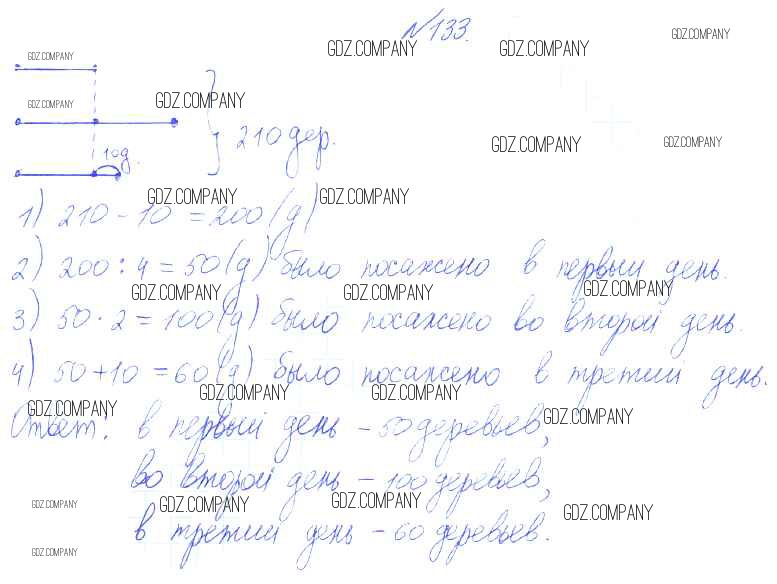 №133.
GDZ.COMPANY GDZ.COMPANY GDZ.COMPANY
GDZ.COMPANY
GDZ.COMPANY GDZ.COMPANY
210 дер.
GDZ.COMPANY GDZ.COMPANY
10д.
GDZ.COMPANY GDZ.COMPANY
1) 210 - 10 = 200 (д)
2) 200 : 4 = 50 (д) было посажено в первый день.
GDZ.COMPANY GDZ.COMPANY GDZ.COMPANY
3) 50 · 2 = 100 (д) было посажено во второй день.
4) 50 + 10 = 60 (д) было посажено в третий день.
GDZ.COMPANY GDZ.COMPANY
GDZ.COMPANY GDZ.COMPANY
Ответ: в первый день – 50 деревьев,
во второй день – 100 деревьев,
GDZ.COMPANY GDZ.COMPANY GDZ.COMPANY GDZ.COMPANY
в третий день – 60 деревьев.
GDZ.COMPANY